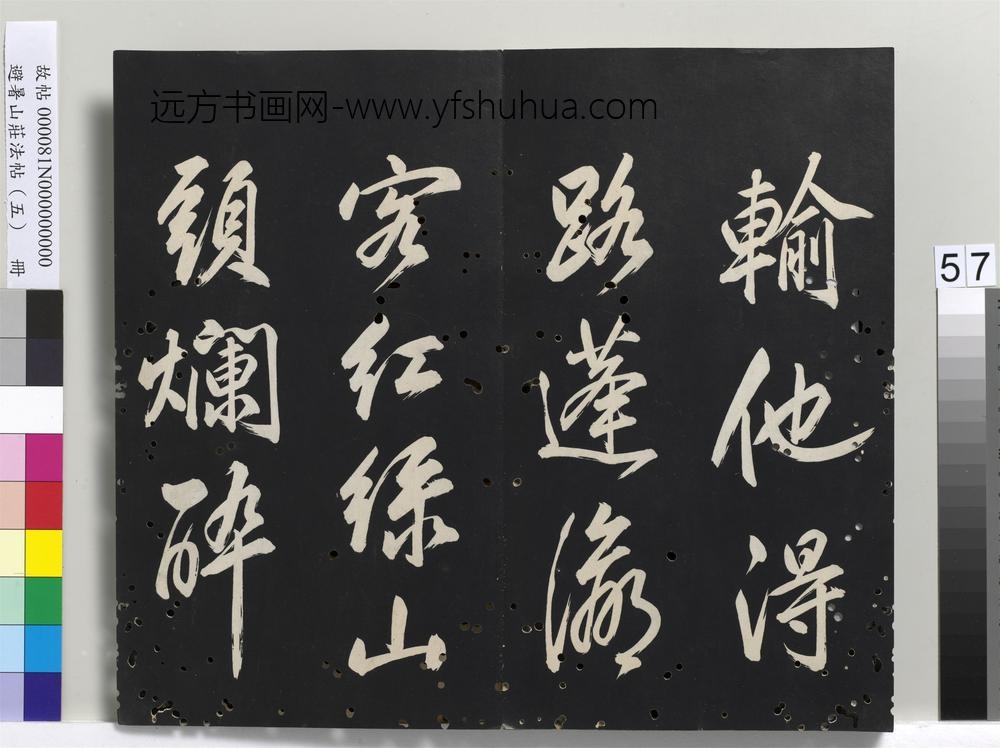 輸他得
路蓬瀛
客红緑山
頭爛醉
远方书画网-www.yfshuhua.com
故帖 000081N000000000
避暑山莊法帖（五） 冊
57